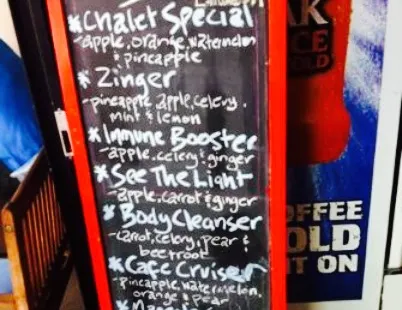 *Chalet Special
-apple, orange, watermelon
& pineapple
* Zinger
-pineapple, apple, celery,
mint & lemon
* Immune Booster
-apple, celery & ginger
* See The Light
-apple, carrot & ginger
* Body Cleanser
-carrot, celery, pear &
beetroot
* Cafe Cruiser
-pineapple, watermelon,
orange & pear
AK
CE
OLD
OFFEE
OLD
T ON